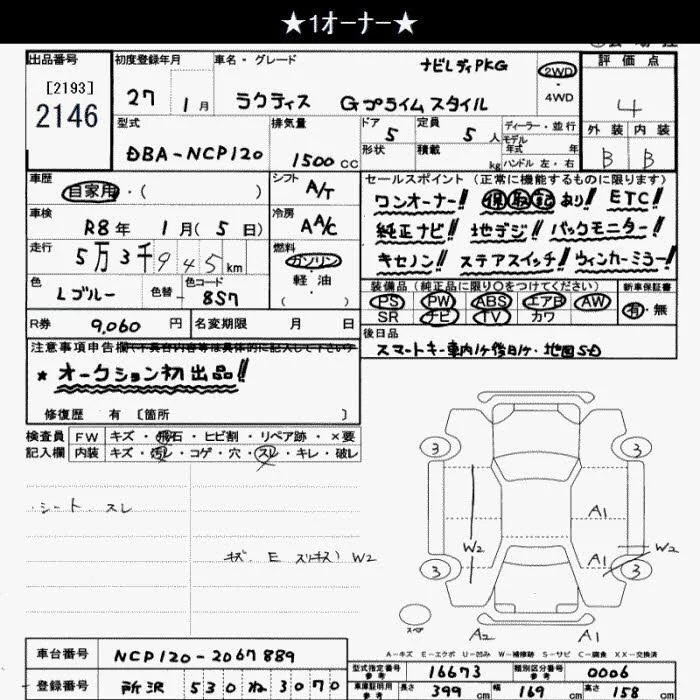 ★1オーナー★
出品番号
[2193]
2146
初度登録年月
27 1月
車名・グレード
ナビレディPKG
ラクティス Gプライムスタイル
2WD
・
4WD
評価点
4
外装 内装
B B
型式
DBA-NCP120
排気量
1500 CC
ドア 5
形状
定員 5 人
積載 kg
ディーラー・並行
モデル年式 年
ハンドル 左・右
車歴
自家用・( )
シフト
A/T
車検
R8年 1月(5日)
冷房
AA/C
走行
5万3千945km
燃料
ガソリン
・
軽油
( )
色
Lブルー
色替
色コード
8S7
R券 9,060 円
名変期限 月 日
セールスポイント (正常に機能するものに限ります)
ワンオーナー!! 保取記あり!! ETC!!
純正ナビ!! 地デジ!! バックモニター!!
キセノン!! ステアスイッチ!! ウィンカーミラー!!
装備品 (純正品に限り○をつけてください)
新車保証書
PS PW ABS エアB AW
SR ナビ TV カワ
有・無
後日品
スマートキー車内1ヶ後日1ヶ・地図SD
注意事項申告欄
★オークション初出品!!
修復歴 有 [箇所 ]
検査員
記入欄
FW キズ・飛石・ヒビ割・リペア跡・×要
内装 キズ・汚レ・コゲ・穴・スレ・キレ・破レ
・シート スレ
キズ E スリキズ) W2
3 3
A1
W2 A1 W2
3 3
スペア
A2 A1
A－キズ E－エクボ U－凹み W－補修跡 S－サビ C－腐食 XX－交換済
車台番号 NCP120-2067889
登録番号 所沢 530 ね 3070
型式指定番号
参考
16673
類別区分番号
参考
0006
車庫証明用
参考
長さ 399 cm 幅 169 cm 高さ 158 cm